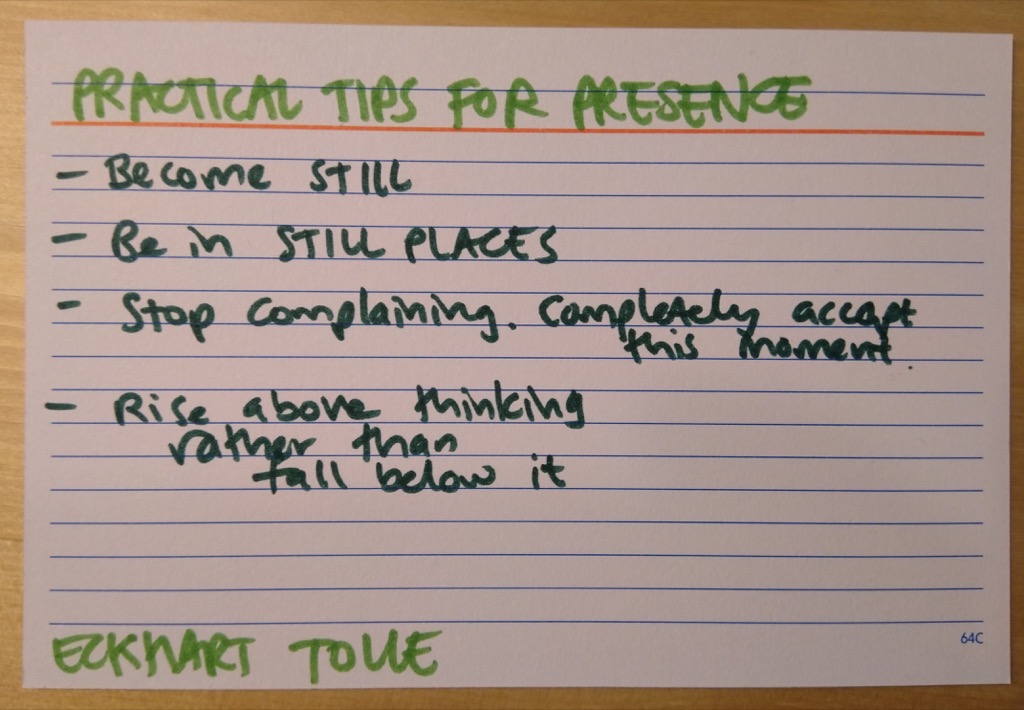 PRACTICAL TIPS FOR PRESENCE
- Become STILL
- Be in STILL PLACES
- Stop complaining. Completely accept
this moment.
- Rise above thinking
rather than
fall below it
64C
ECKHART TOLLE